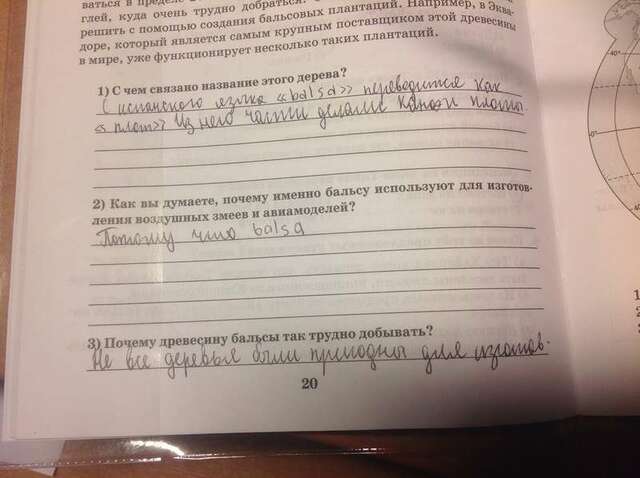 ваться в пределе
глей, куда очень трудно добраться.
решить с помощью создания бальсовых плантаций. Например, в Эква-
доре, который является самым крупным поставщиком этой древесины
в мире, уже функционирует несколько таких плантаций.
1) С чем связано название этого дерева?
С испанского языка «balsa» переводится как
«плот» Из него часто делали каноэ и плоты
2) Как вы думаете, почему именно бальсу используют для изготов-
ления воздушных змеев и авиамоделей?
Потому что balsa
3) Почему древесину бальсы так трудно добывать?
Не все деревья были пригодны для изготов-
20
40°
0°
40